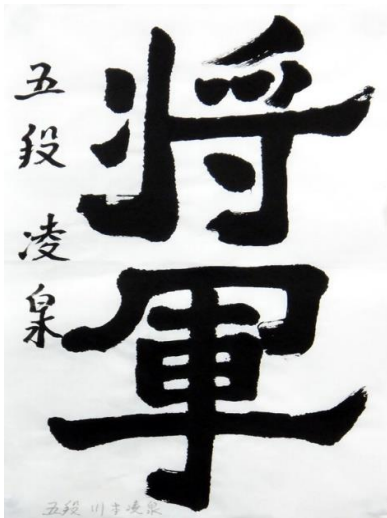 将軍
五段 凌泉
五段 川本凌泉